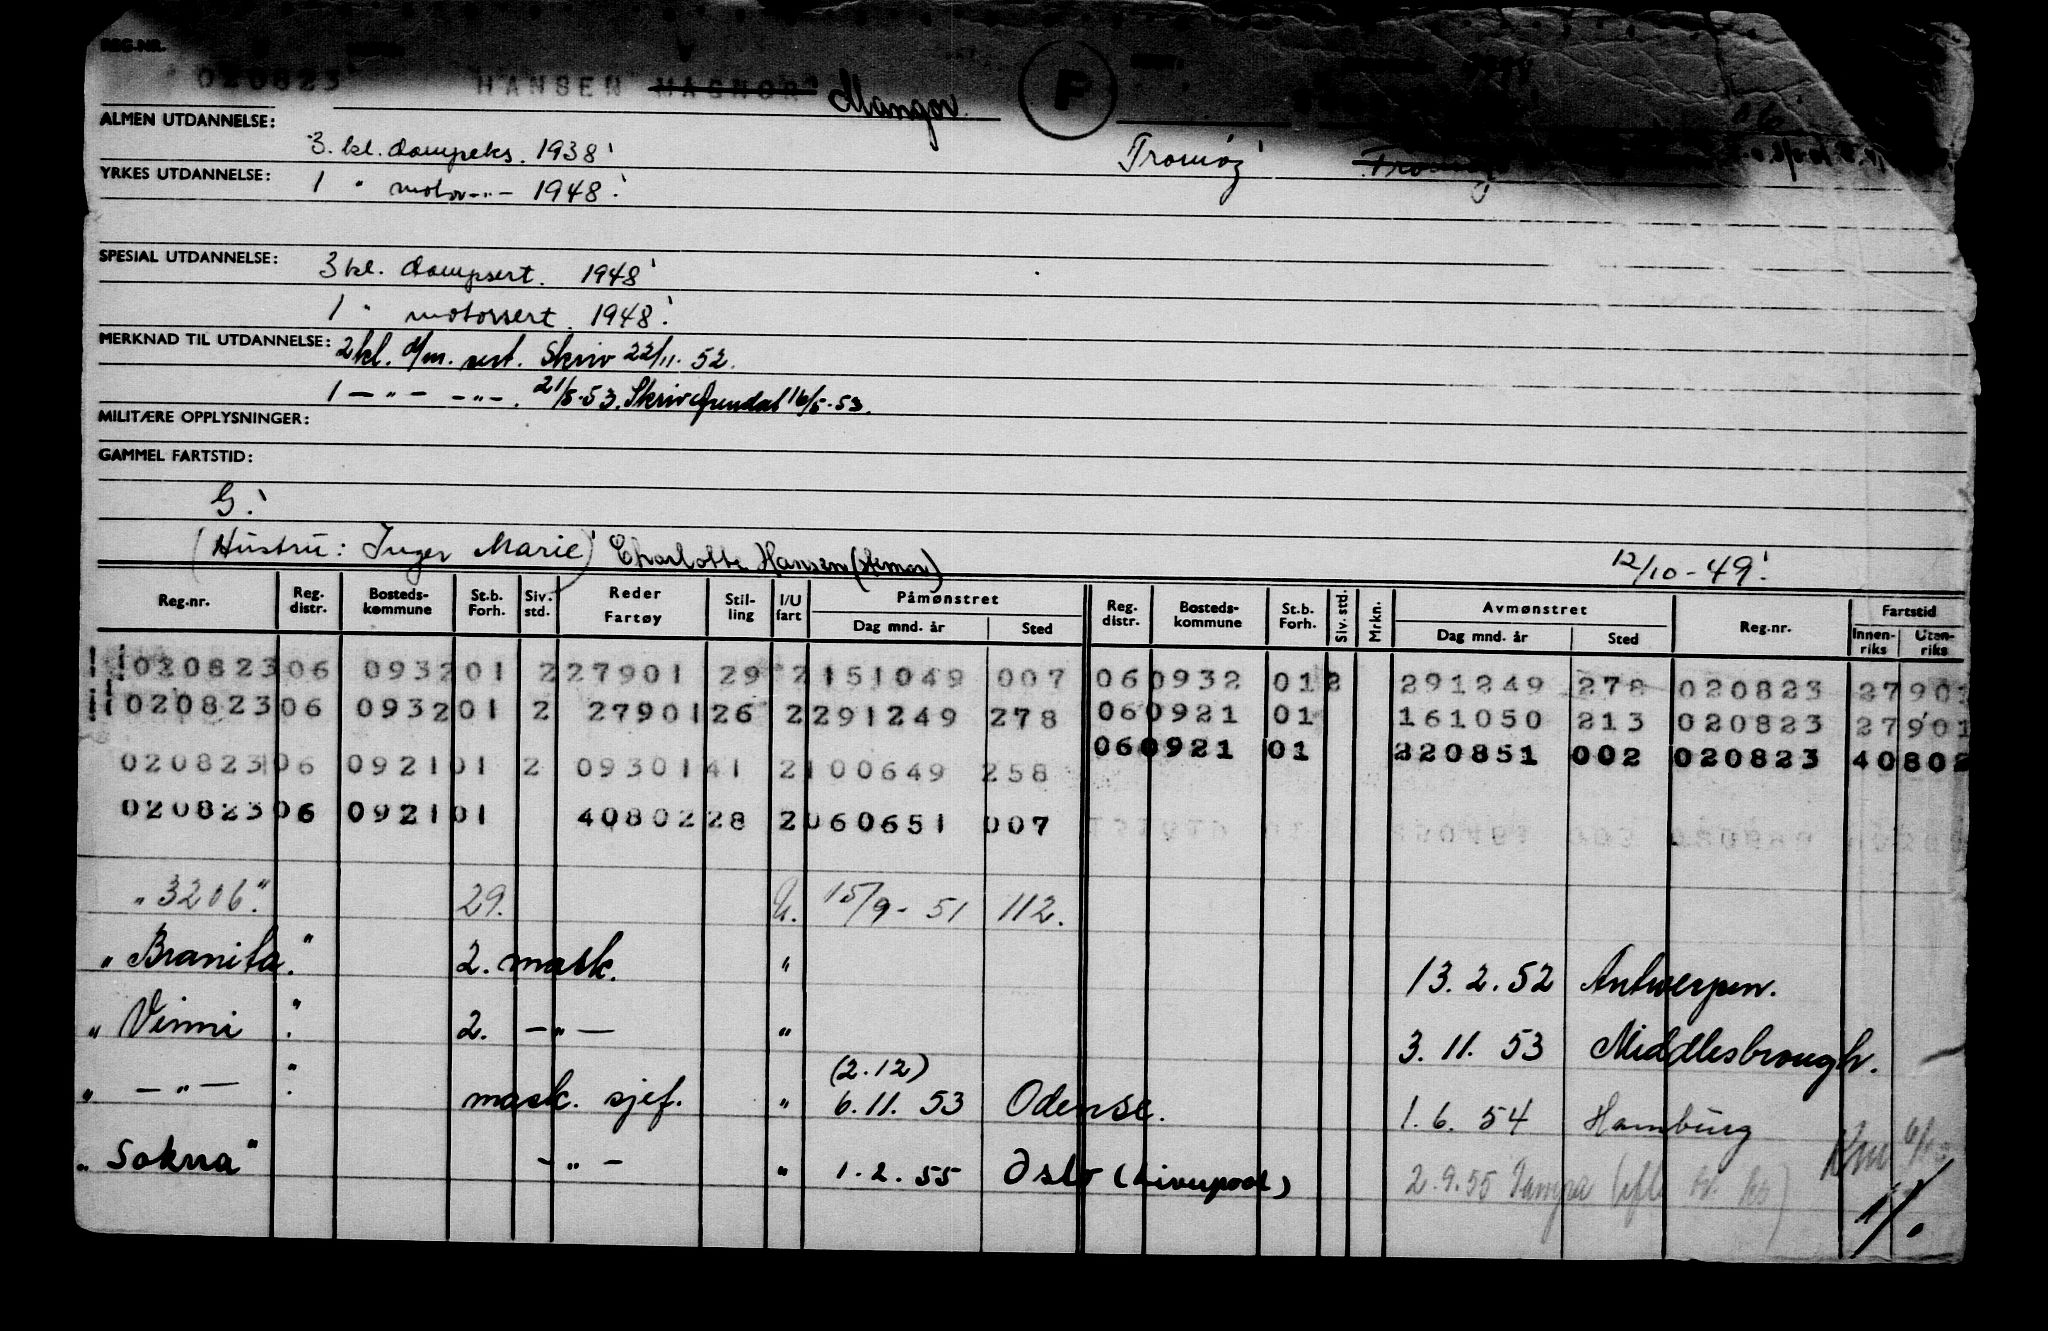 REG.NR.
020823 HANSEN MAGNOR Mangor F
ALMEN UTDANNELSE:
3. kl. dampeks. 1938! Tromøy Tromøy
YRKES UTDANNELSE: 1 " motor -"- 1948!
SPESIAL UTDANNELSE: 3 kl. dampsert. 1948!
1 " motorsert. 1948!
MERKNAD TIL UTDANNELSE: 2 kl. d/m. sert. Skriv 22/11. 52.
1 - " - - " -. 21/5.53. Skriv Arendal 16/5.53.
MILITÆRE OPPLYSNINGER:
GAMMEL FARTSTID:
G!
(Hustru: Inger Marie) Charlotte Hansen 12/10-49!
Reg.nr. Reg. distr. Bosteds-kommune St.b. Forh. Siv. std. Reder Fartøy Stil-ling I/U fart Påmønstret Dag mnd. år Sted Reg. distr. Bosteds-kommune St.b. Forh. Siv. std. Mrkn. Avmønstret Dag mnd. år Sted Reg.nr. Fartstid Innen-riks Uten-riks
020823 06 0932 01 2 27901 29 2 151049 007 06 0932 01 2 291249 278 020823 27901
020823 06 0932 01 2 27901 26 2 291249 278 06 0921 01 161050 213 020823 27901
06 0921 01 220851 002 020823 40802
020823 06 0921 01 2 09301 41 2 100649 258
020823 06 0921 01 40802 28 2 060651 007
"3206". 29. U. 15/9-51 112.
"Branita." 2. mask. " 13.2.52 Antwerpen.
"Vinni". 2. -"- " 3.11.53 Middlesbrough.
(2.12)
" -"- ". mask. sjef. " 6.11.53 Odense. 1.6.54 Hamburg
"Sokna" -"- " 1.2.55 Oslo (Liverpool) 2.9.55 Tampa